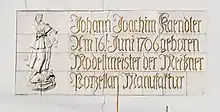 Johann Joachim Kaendler
Am 16. Juni 1706 geboren
Modellmeister der Meißner
Porzellan Manufaktur